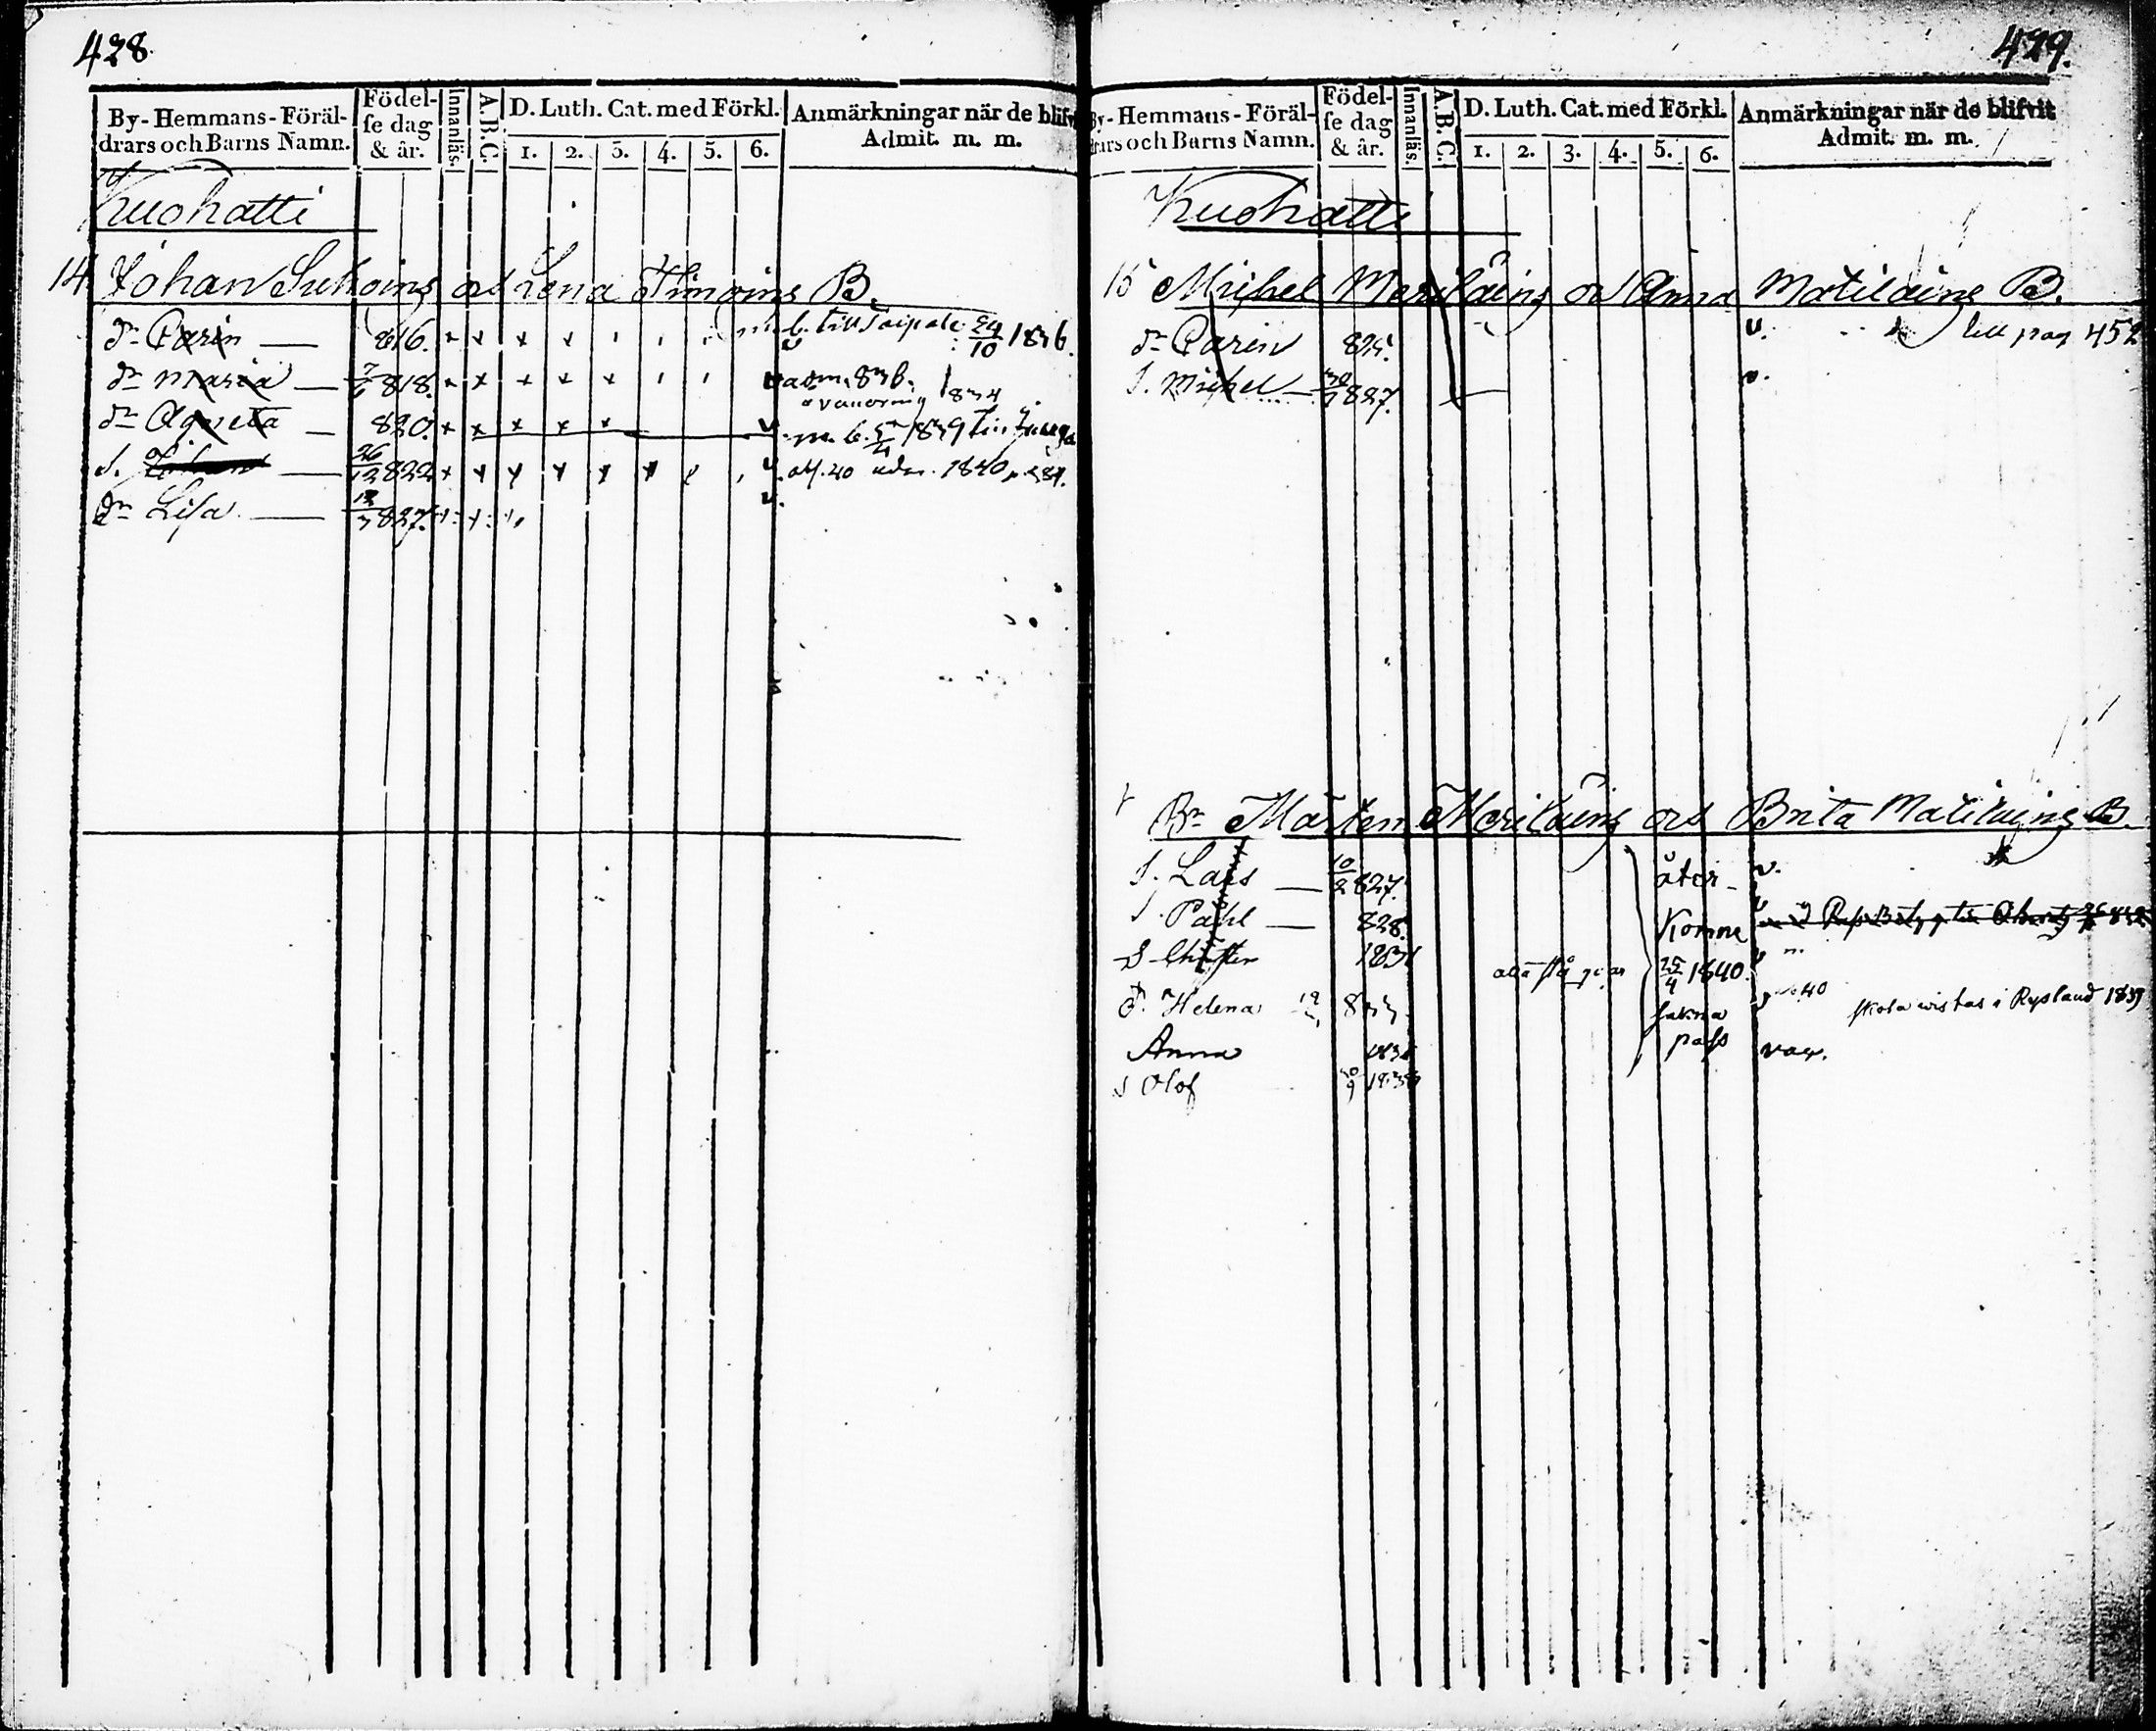 428.
By-Hemmans-Föräl-
drars och Barns Namn.
Födel-
se dag
& år.
Innanläs.
A.B.C.
D. Luth. Cat. med Förkl.
1. 2. 3. 4. 5. 6.
Anmärkningar när de blifv
Admit. m. m.
Kuohatti
14. Johan Suhoing och Lena Timoins B.
dr Carin — 816. x x x x m. b. till Saipale 24/10 1836.
dr Maria — 7/6 818. x x x x x v adm. 836.
1834
dr Agneta — 820. x x x x x v m. b. 5/4 1839
S. Johan — 26/12 822 x x x x x x v 1840
dr Lisa — 12/3 827. v.
429.
By-Hemmans-Föräl-
drars och Barns Namn.
Födel-
se dag
& år.
Innanläs.
A.B.C.
D. Luth. Cat. med Förkl.
1. 2. 3. 4. 5. 6.
Anmärkningar när de blifvit
Admit. m. m.
Kuohatti
15 Michel Meriläing och Anna Matilaing B.
dr Carin 825. v. till pag 452
S. Michel — 827. v.
Br Mårten Meriläing och Brita Matilaing B.
S. Lars — 10/2 827. åter- v.
S. Påhl — 828. komne v
S Christer 1831 25/4 1840. v
d. Helena 833 sakna v skola wistas i Ryssland 1839
Anna pass vag.
S Olof